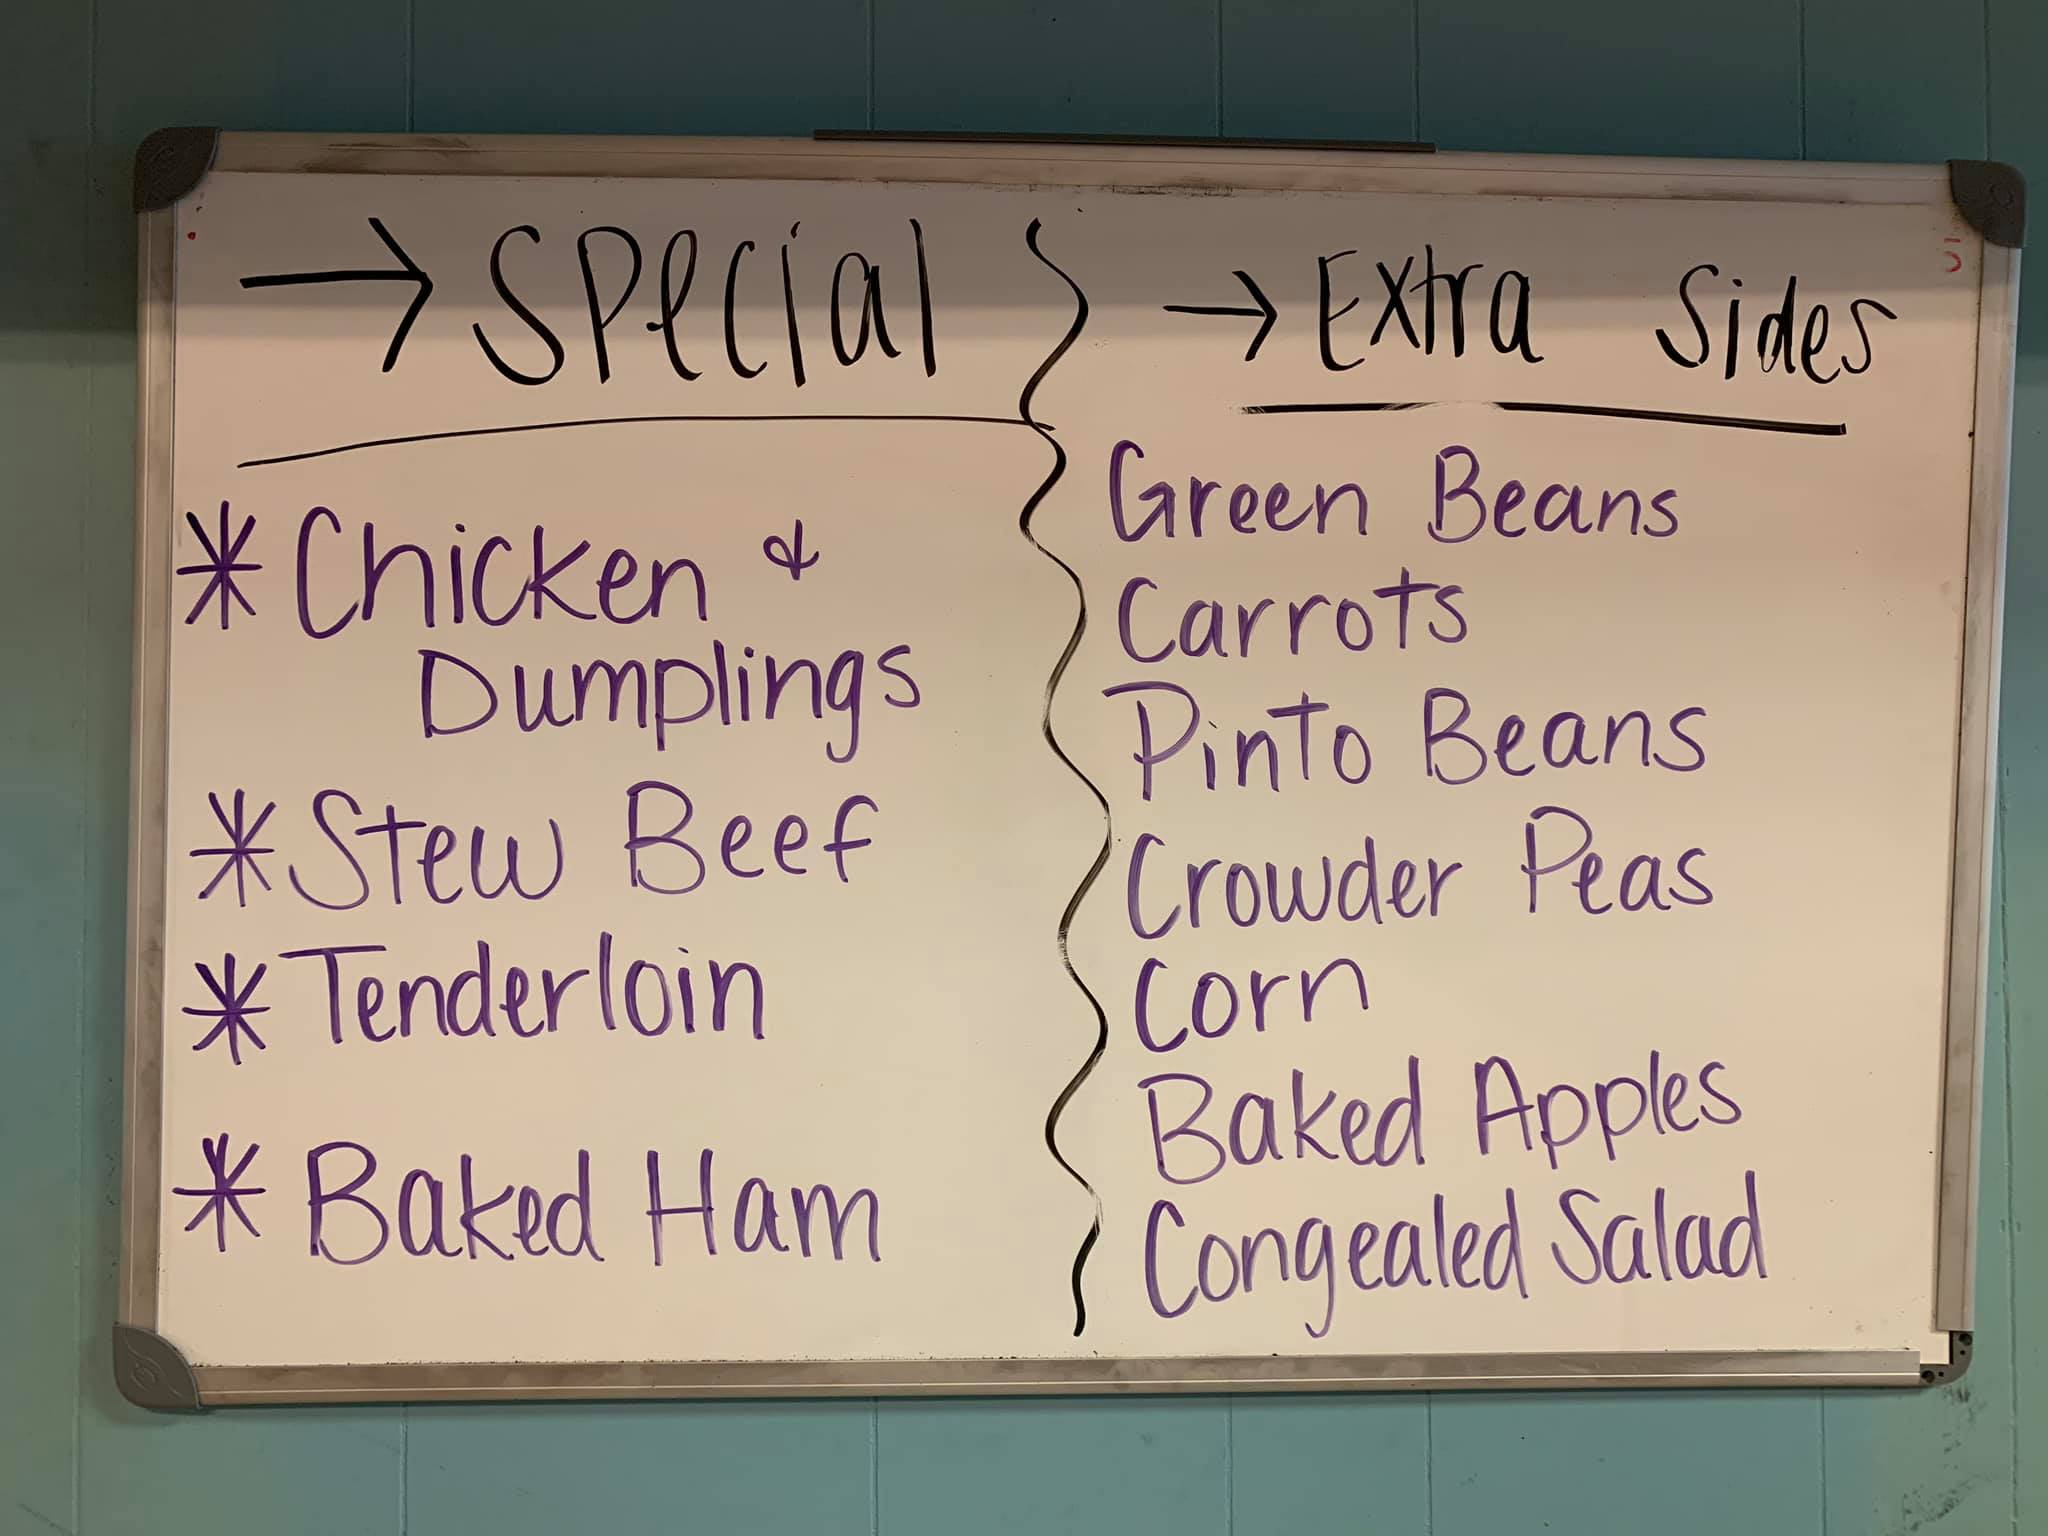 → Special
* Chicken &
Dumplings
* Stew Beef
* Tenderloin
* Baked Ham
→ Extra Sides
Green Beans
Carrots
Pinto Beans
Crowder Peas
Corn
Baked Apples
Congealed Salad